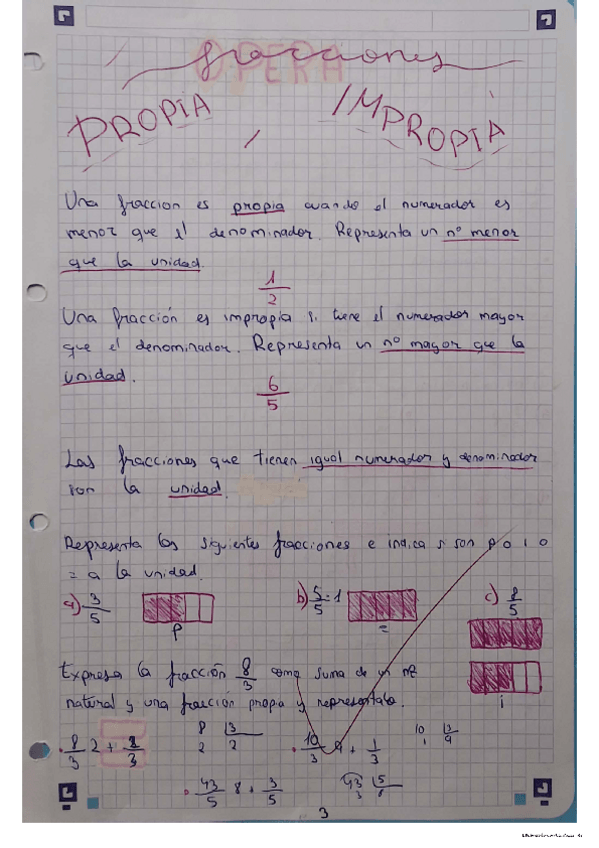 fracciones
PROPIA / IMPROPIA
Una fraccion es propia cuando el numerador es
menor que el denominador. Representa un nº menor
que la unidad.
1/2
Una fracción es impropia si tiene el numerador mayor
que el denominador. Representa un nº mayor que la
unidad.
6/5
Las fracciones que tienen igual numerador y denominador
son la unidad.
Representa las siguientes fracciones e indica si son p o i o
= a la unidad.
a) 3/5 b) 5/5 = 1 c) 8/5
p = i
Expresa la fracción 8/3 como suma de un nº
natural y una fracción propia y representalo.
8/3 2 + 2/3 8 3 10/3 9 + 1/3 10 3
2 2 1 9
43/5 8 + 3/5 43 5
3 8
3